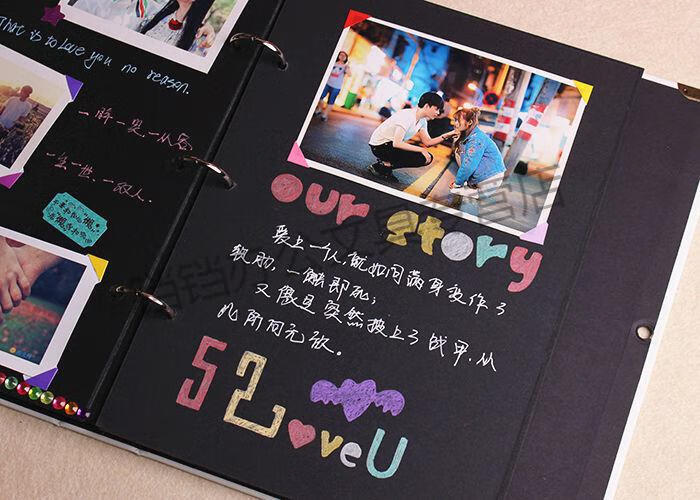 That is to love you no reason.
一生一世、一双人.
our story
爱上一人,就如同满身变作了
软肋,一触即死;
又像是突然披上了战甲,从
此所向无敌。
52
LoveU